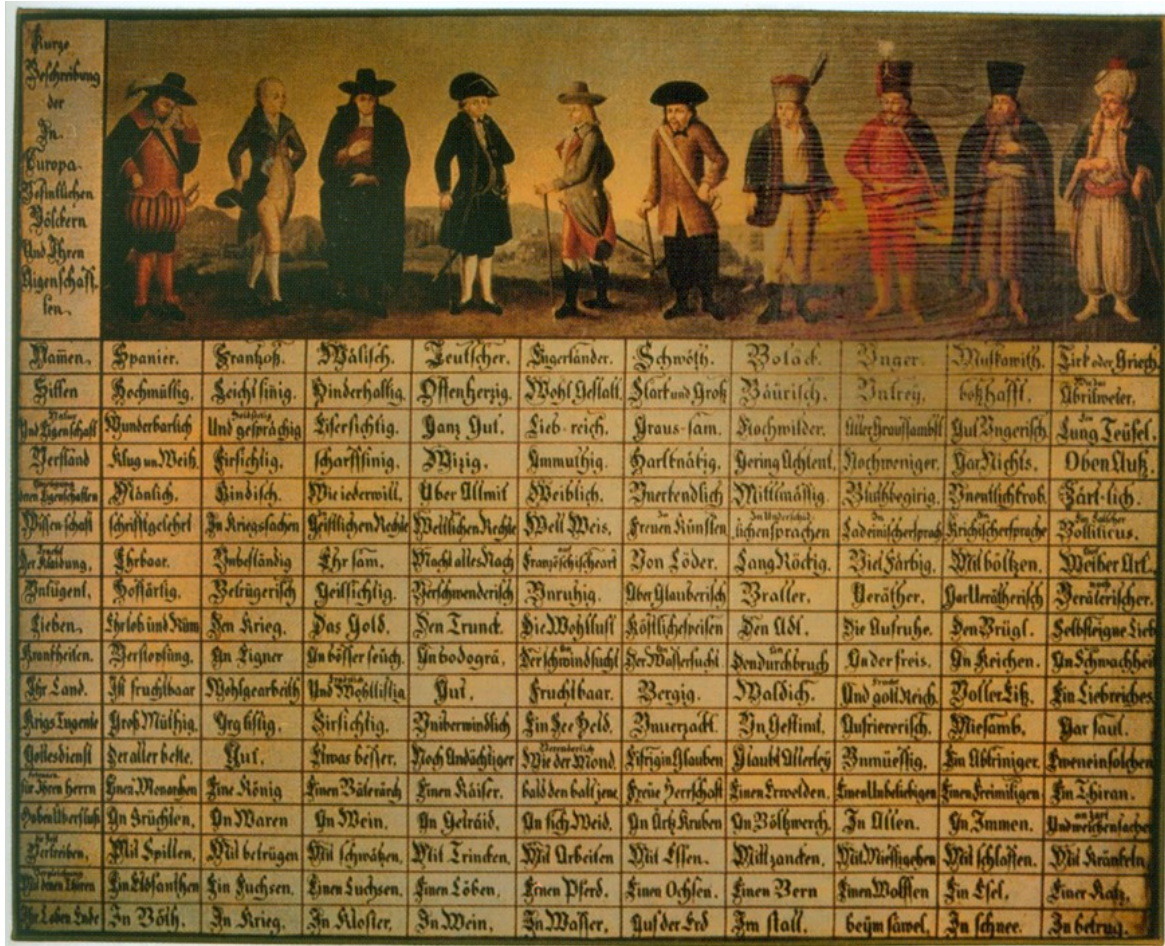 Kurze
Beschreibung
der
In
Europa
Befintlichen
Völckern
Und Ihren
Aigenschaff
ten.
Namen. Spanier. Frantzoß. Wälisch. Teutscher. Engerländer. Schwöth. Boläck. Unger. Muskawith. Tirk oder Griech.
Sitten Hochmüttig. Leicht sinig. Hinderhaltig. Offenherzig. Wohl Gestalt. Starck und Groß Bäurisch. Untrey. boßhafft. Abrilweter.
Und Eigenschaft Wunderbarlich Und gesprächig Eifersichtig. Ganz Gut. Lieb-reich. Graus-sam. Nochwilder. Gut Ungerisch. Lung Teüfel.
Verstand Klug un Weiß. Firsichtig. scharffsinig. Wizig. Ammuthig. Hartknäkig. Gering Achtent. Nochweniger. Gar Nichts. Oben Auß.
Mänlich. Kindisch. Wie iederwill. Über Allmit Weiblich. Unerkendlich Mittlmässig. Bluthbegirig. Unentlichkrob. Zärt-lich.
Wissenschaft schrifftgelehrt In Kriegssachen Geistlichen Rechte Weltlichen Rechte Welt Weis. Freuen Künsten Bolliticus.
Der Klaidung. Ehrbaar. Unbeständig Ehrsam. Macht alles Nach Französchischeart Von Löder. Lang Röckig. Viel Färbig. Mit böltzen. Weiber Art.
Untugent. Hoffärtig. Betrügerisch Geillsichtig. Verschwenderisch Unruhig. Über Glauberisch Braller. Veräther. Gar Verätherisch Verälerischer.
Lieben. Ehrlob und Rüm Den Krieg. Das Gold. Den Trunck. Die Wohllust Köstlichespeisen Den Adl. Die Aufruhe. Den Brügl. Selbsteigne Lieb
Krankheiten. Verstopfung. An Eigner An bösser seüch. An bodogrä. Der schwindsucht Der Wassersucht Den durchbruch An der freis. An Keichen. An Schwachheit
Ihr Land. Ist fruchtbaar Wohlgearbeith Und Wohllistig Gut. Fruchtbaar. Bergig. Waldich. Und golt Reich. Voller Eiß. Ein Liebreiches
Krigs Tugente Groß Müthig. Arg listig. Firsichtig. Uniberwindlich Ein See Held. Unverzackt. Un Gestimt. Aufriererisch. Miesamb. Gar faul.
Gottesdienst Der aller beste. Gut. Etwas besser. Noch Andächtiger Wie der Mond. Eifrig in Glauben Glaubt Allerley Unmüessig. Ein Abtriniger. Eweneinsolchen
für Ihren Herrn Einen Monarchen Eine König Einen Bäterärch Einen Kaiser. bald den bald jene Freüe Herrschaft Einen Erwelden. Einen Unbeliebigen Einen Freimiligen Ein Thiran.
Haben Überfluß An Früchten. An Waren An Wein. An Geträid. An fich Weid. An Ärtz Kruben An Böltzwerch. In Allen. An Immen. Und weichen sachen
Vertreiben. Mit Spillen. Mit betrügen Mit schwätzen. Mit Trincken. Mit Arbeiten Mit Essen. Mit zancken. Mit Miessigehen Mit schlaffen. Mit Kränkeln
Mit denen Thieren Ein Elofanthen Ein Fuchsen. Einen Luchsen. Einen Löben. Einen Pferd. Einen Ochsen. Einen Bern Einen Wolffen Ein Esel. Einer Katz.
Ihr Leben Ende In Böth. In Krieg. In Kloster. In Wein. In Wasser. Auf der Erd Im stall. beÿm säwel. In schnee. In betrug.